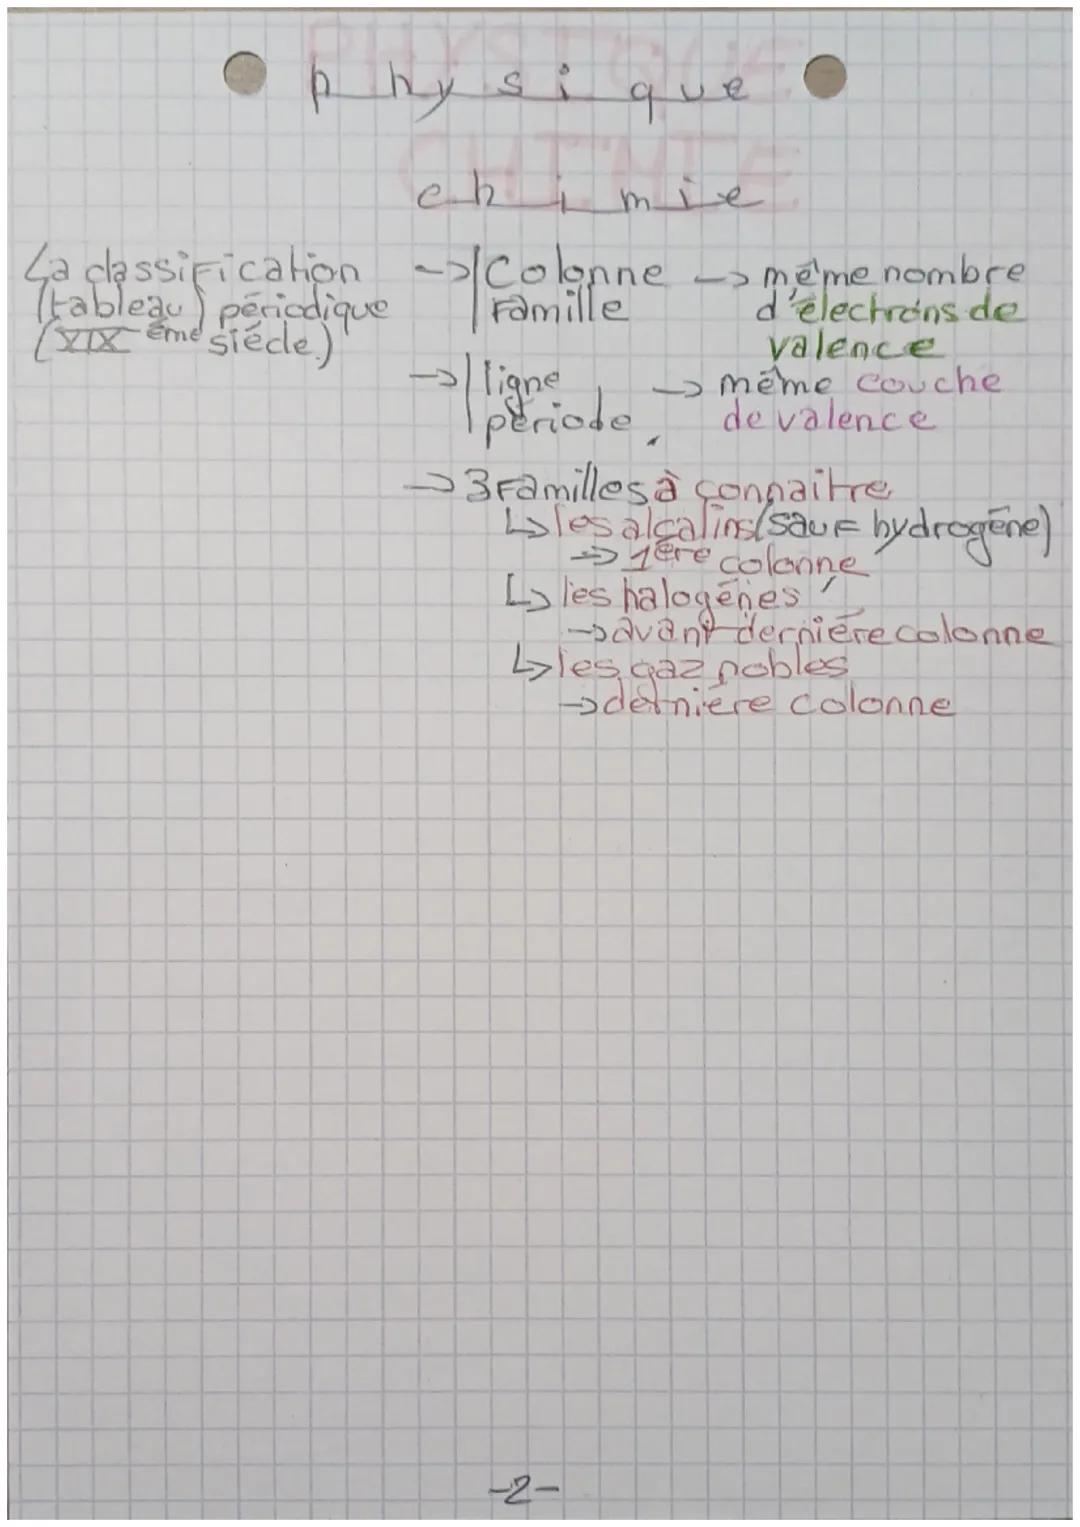 physique
chimie
La classification
(tableau) périodique
(XIX ème siècle)
-> Colonne -> même nombre
Famille d'électrons de
valence
-> ligne -> même couche
période de valence
-> 3 Familles à connaitre
↳ les alcalins (sauf hydrogène)
-> 1ère colonne
↳ les halogènes
-> avant dernière colonne
↳ les gaz nobles
-> dernière colonne
-2-